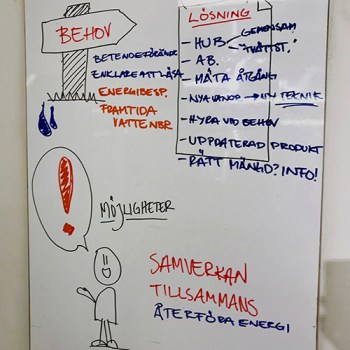 BEHOV
BETENDEFÖRÄNDR
ENKLARE ATT LÅSA
ENERGIBESP.
FRAMTIDA
VATTENBR
LÖSNING
- HUB
GEMENSAM
"TVÄTTST."
- AB.
- MÄTA ÅTGÅNG
- NYA VANOR → NY TEKNIK
- HYRA VID BEHOV
- UPPDATERAD PRODUKT
- RÄTT MÄNGD? INFO!
!
MÖJLIGHETER
SAMVERKAN
TILLSAMMANS
ÅTERFÖRA ENERGI